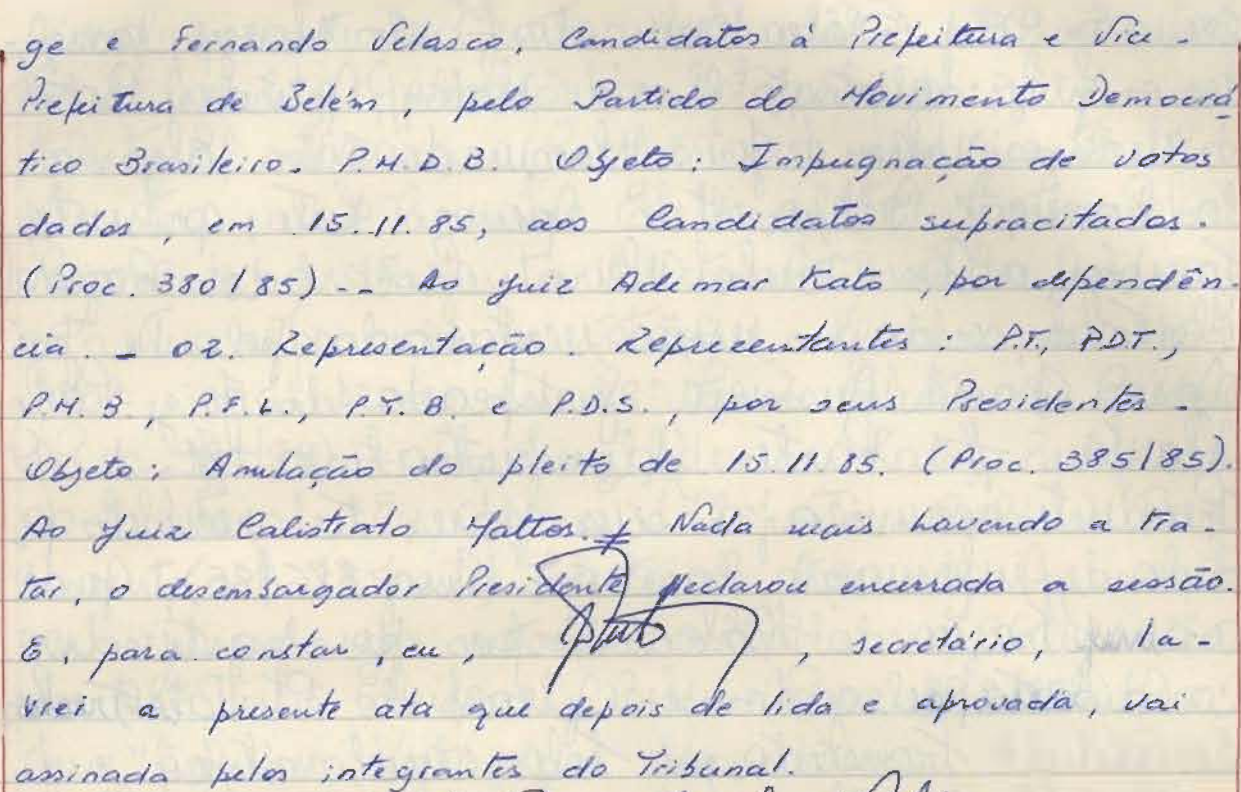 ge e Fernando Velasco, Candidatos à Prefeitura e Vice-
Prefeitura de Belém, pelo Partido do Movimento Democrá
tico Brasileiro. P.M.D.B. Objeto: Impugnação de votos
dados, em 15.11.85, aos Candidatos supracitados.
(Proc. 380/85) -- Ao Juiz Ademar Kato, por dependên-
cia. - 02. Representação. Representantes: P.T., P.D.T.,
P.M.B., P.F.L., P.T.B. e P.D.S., por seus Presidentes -
Objeto: Anulação do pleito de 15.11.85. (Proc. 385/85).
Ao Juiz Calistrato Mattos. ≠ Nada mais havendo a tra-
tar, o desembargador Presidente declarou encerrada a sessão.
E, para constar, eu, , secretário, la-
vrei a presente ata que depois de lida e aprovada, vai
assinada pelos integrantes do Tribunal.